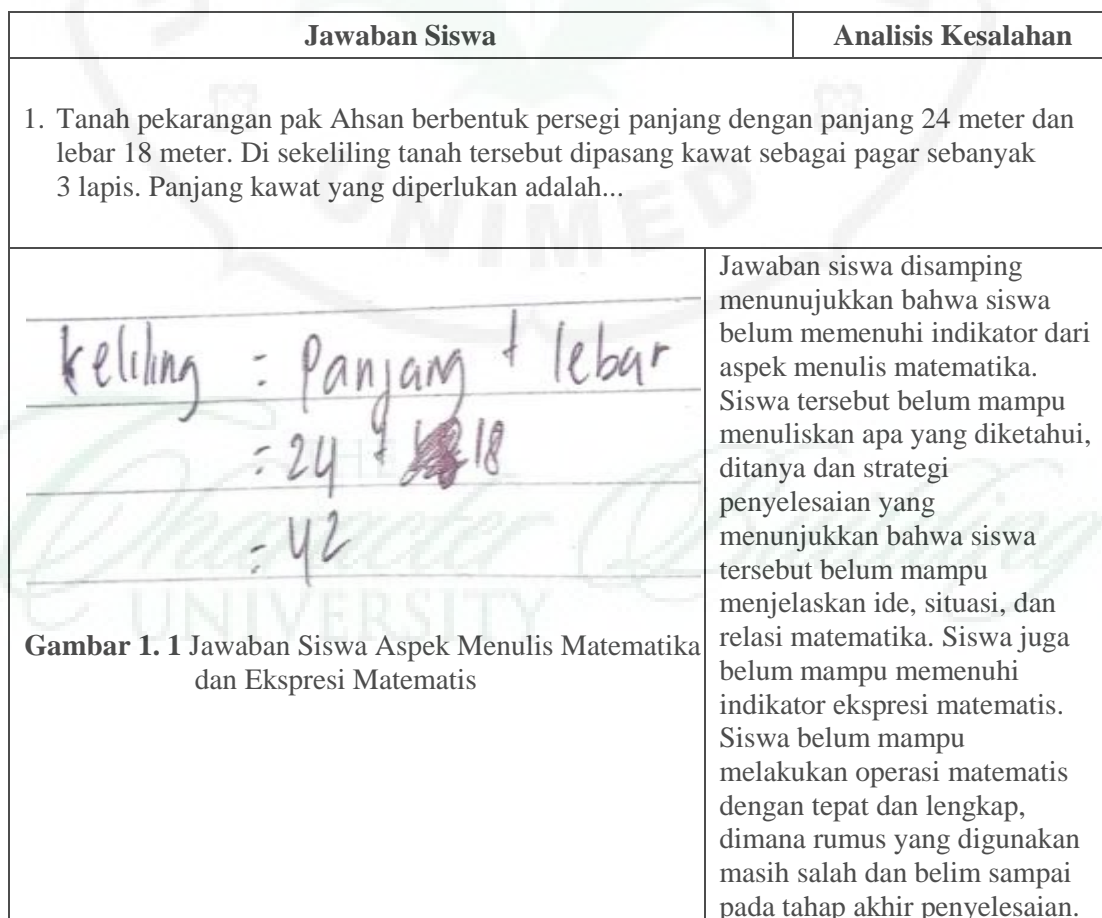 Jawaban Siswa
Analisis Kesalahan
1. Tanah pekarangan pak Ahsan berbentuk persegi panjang dengan panjang 24 meter dan
lebar 18 meter. Di sekeliling tanah tersebut dipasang kawat sebagai pagar sebanyak
3 lapis. Panjang kawat yang diperlukan adalah...
keliling = Panjang + lebar
= 24 + 18
= 42
Gambar 1. 1 Jawaban Siswa Aspek Menulis Matematika
dan Ekspresi Matematis
Jawaban siswa disamping
menunujukkan bahwa siswa
belum memenuhi indikator dari
aspek menulis matematika.
Siswa tersebut belum mampu
menuliskan apa yang diketahui,
ditanya dan strategi
penyelesaian yang
menunjukkan bahwa siswa
tersebut belum mampu
menjelaskan ide, situasi, dan
relasi matematika. Siswa juga
belum mampu memenuhi
indikator ekspresi matematis.
Siswa belum mampu
melakukan operasi matematis
dengan tepat dan lengkap,
dimana rumus yang digunakan
masih salah dan belim sampai
pada tahap akhir penyelesaian.
UNIMED
THE
Character Building
UNIVERSITY